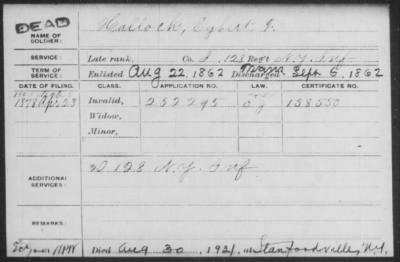 DEAD
NAME OF SOLDIER: Hallock, Egbert J.
SERVICE: Late rank, Co. I, 128 Reg't N.Y. Inf.
TERM OF SERVICE: Enlisted Aug 22, 1862 Discharged Sept 5, 1862
DATE OF FILING. CLASS. APPLICATION NO. LAW. CERTIFICATE NO.
1878 Apr 23 Invalid, 252295 158550
Widow,
Minor,
ADDITIONAL SERVICES: D 128 N.Y. Inf
REMARKS:
Died Aug 30, 1921, at Stanfordville, N.Y.